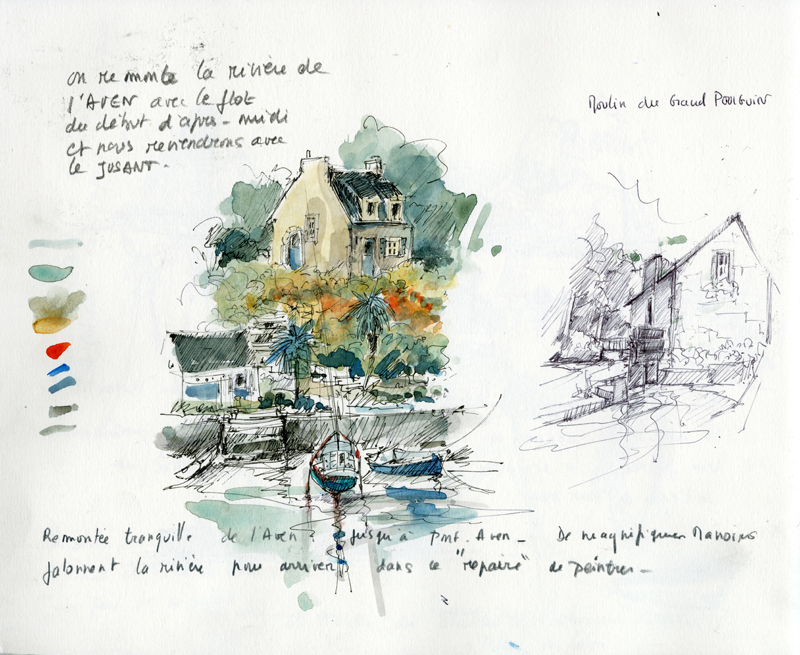 On remonte la rivière de
l'AVEN avec le flot
du début d'après-midi
et nous reviendrons avec
le JUSANT.
Moulin du Grand POULGUIN
Remontée tranquille de l'Aven jusqu'à Pont-Aven - De magnifiques Manoirs
jalonnent la rivière pour arriver dans ce "repaire" de peintres -